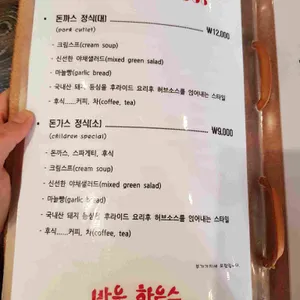 • 돈까스 정식(대) ₩12,000
(pork cutlet)
• 크림스프(cream soup)
• 신선한 야채샐러드(mixed green salad)
• 마늘빵(garlic bread)
• 국내산 돼지 등심을 후라이드 요리후 허브소스를 얹어내는 스타일
• 후식......커피, 차(coffee, tea)
• 돈가스 정식(소) ₩9,000
(children special)
• 돈까스, 스파게티, 후식
• 크림스프(cream soup)
• 신선한 야채샐러드(mixed green salad)
• 마늘빵(garlic bread)
• 국내산 돼지 등심을 후라이드 요리후 허브소스를 얹어내는 스타일
• 후식......커피, 차(coffee, tea)
하우스